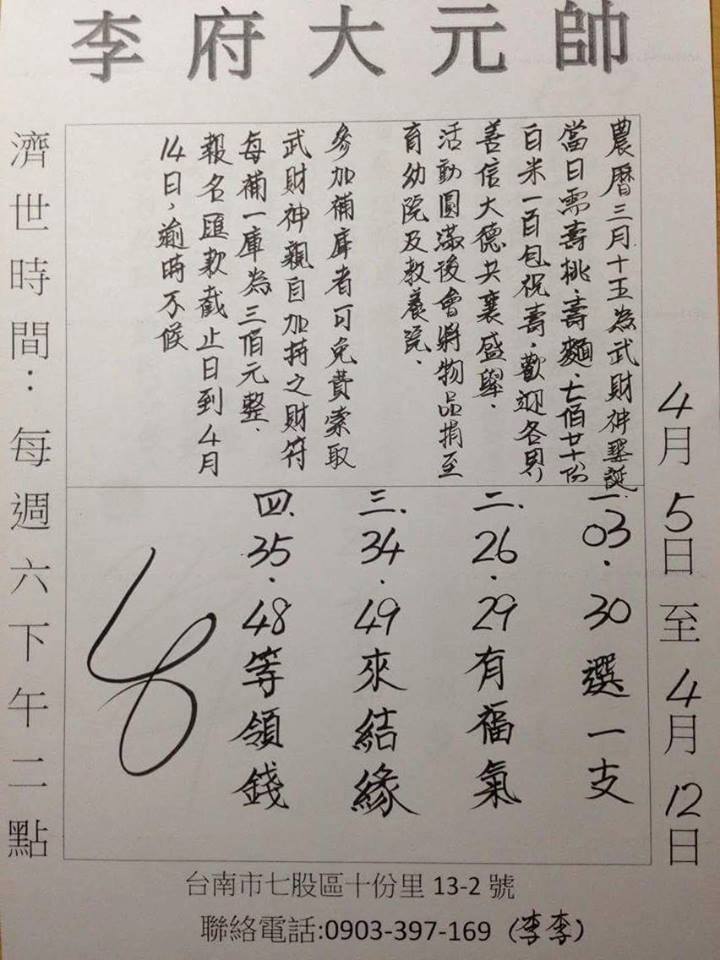 李府大元帥
4月5日至4月12日
農曆三月十五為武財神聖誕.
當日需壽桃.壽麵.七佰廿十份
白米一百包祝壽.歡迎各界
善信大德共襄盛舉.
活動圓滿後會將物品捐至
育幼院及教養院.
參加補庫者可免費索取
武財神親自加持之財符
每補一庫為三佰元整.
報名匯款截止日到4月
14日,逾時不候
一.03.30選一支
二.26.29有福氣
三.34.49來結緣
四.35.48等領錢
濟世時間:每週六下午二點
台南市七股區十份里13-2號
聯絡電話:0903-397-169(李李)